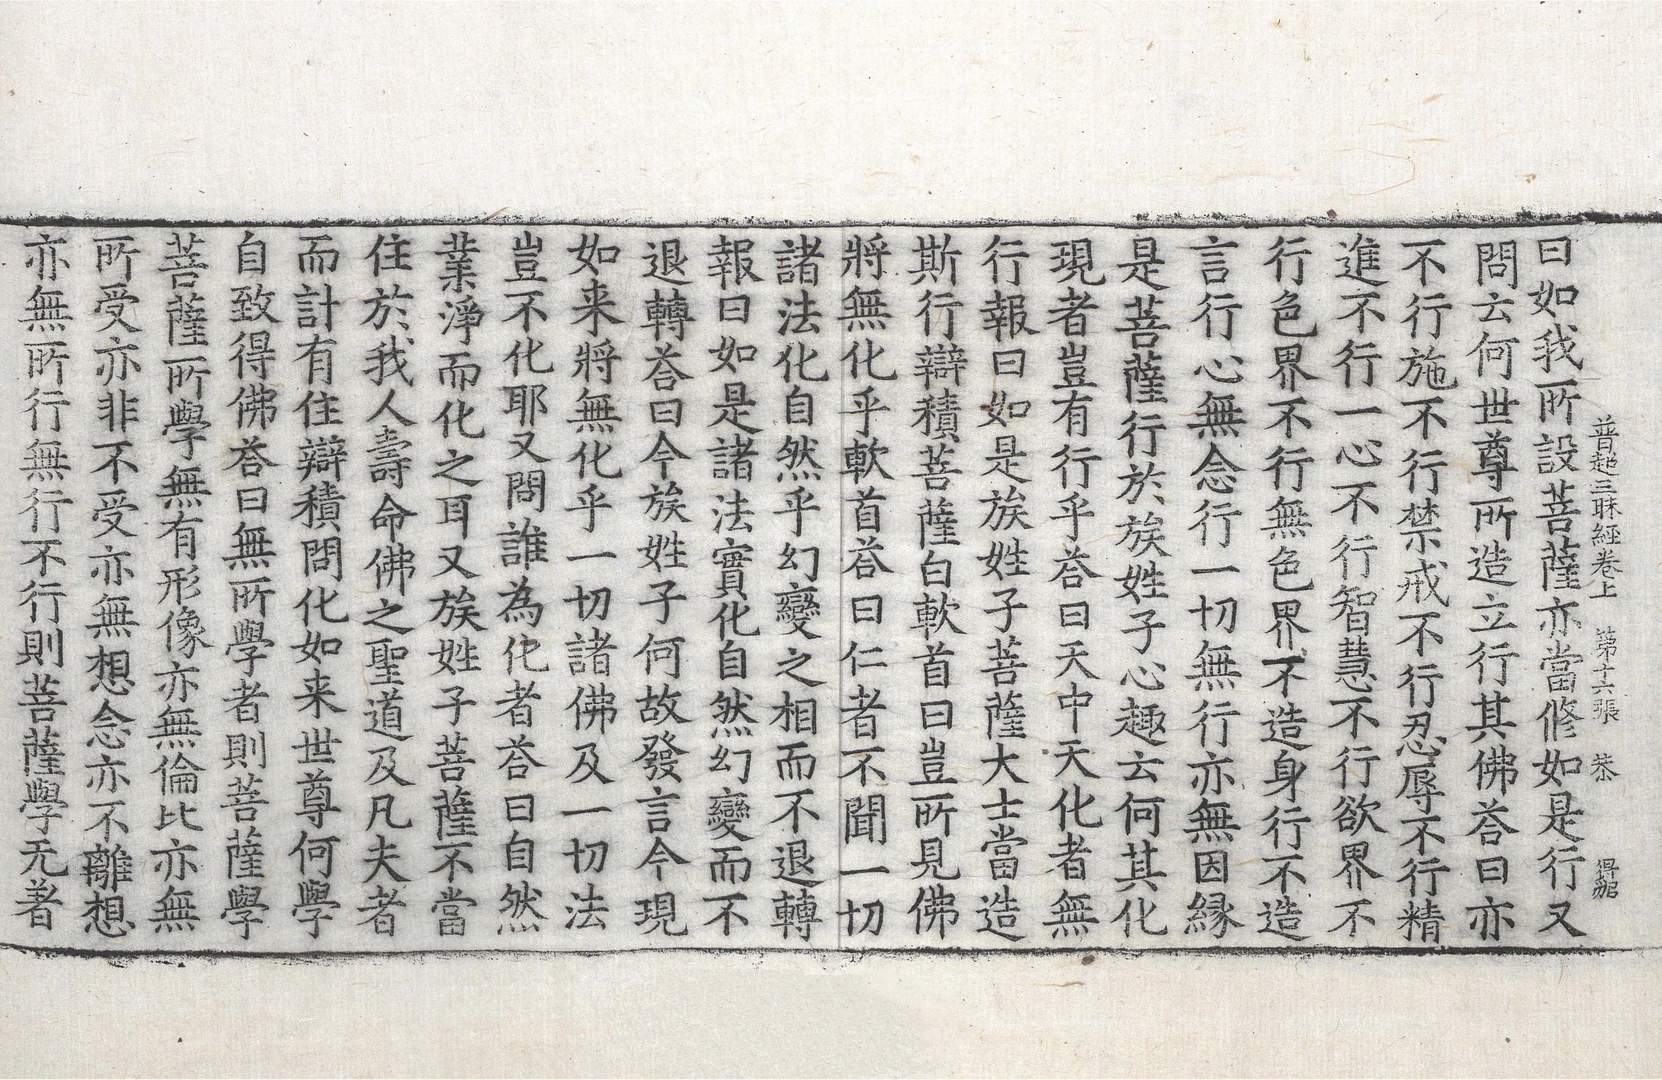 普超三昧經卷上　第十六張　恭　得㒵
曰如我所設菩薩亦當修如是行又
問云何世尊所造立行其佛荅曰亦
不行施不行禁戒不行忍辱不行精
進不行一心不行智慧不行欲界不
行色界不行無色界不造身行不造
言行心無念行一切無行亦無因緣
是菩薩行於族姓子心趣云何其化
現者豈有行乎荅曰天中天化者無
行報曰如是族姓子菩薩大士當造
斯行辯積菩薩白軟首曰豈所見佛
將無化乎軟首荅曰仁者不聞一切
諸法化自然乎幻變之相而不退轉
報曰如是諸法實化自然幻變而不
退轉荅曰今族姓子何故發言今現
如来將無化乎一切諸佛及一切法
豈不化耶又問誰為化者荅曰自然
業淨而化之耳又族姓子菩薩不當
住於我人壽命佛之聖道及凡夫者
而計有住辯積問化如来世尊何學
自致得佛荅曰無所學者則菩薩學
菩薩所學無有形像亦無倫比亦無
所受亦非不受亦無想念亦不離想
亦無所行無行不行則菩薩學无著